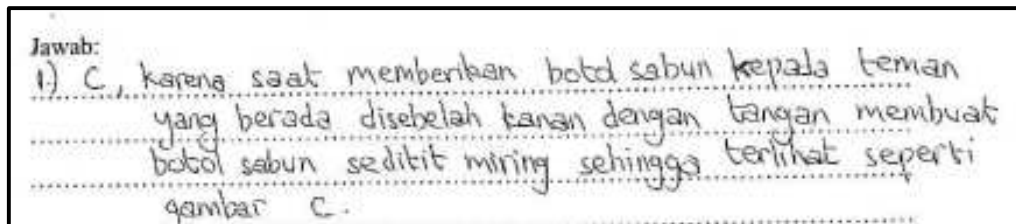 Jawab:
1) C, karena saat memberikan botol sabun kepada teman
yang berada disebelah kanan dengan tangan membuat
botol sabun sedikit miring sehingga terlihat seperti
gambar C.